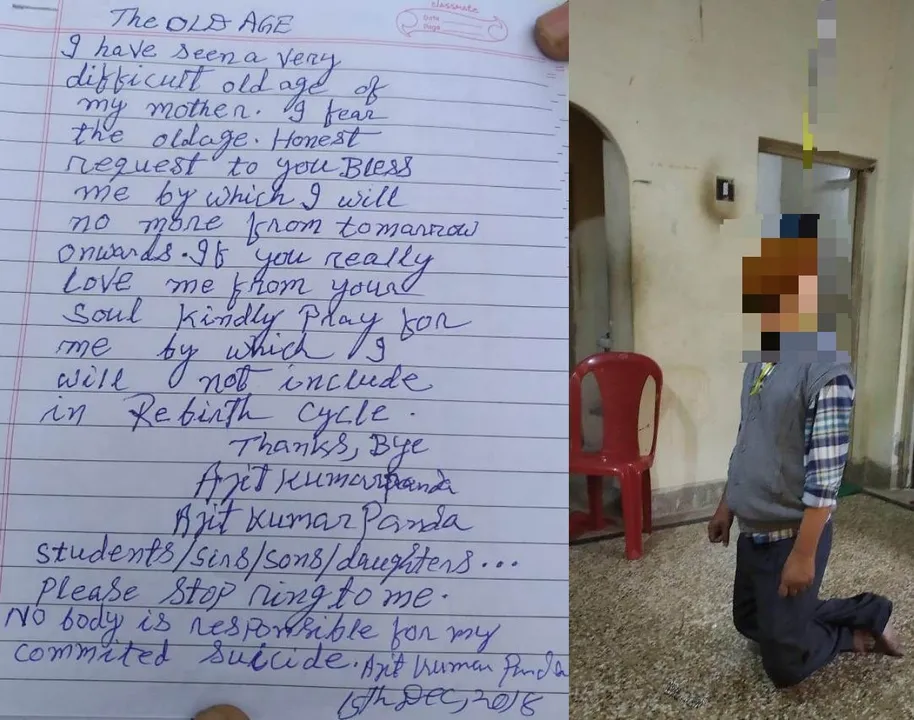 classmate
Date
Page
The OLD AGE
I have seen a very
difficult old age of
my mother. I fear
the oldage. Honest
request to you Bless
me by which I will
no more from tomorrow
onwards. If you really
Love me from your
Soul Kindly Pray for
me by which I
will not include
in Rebirth Cycle.
Thanks, Bye
Ajit Kumar Panda
Ajit Kumar Panda
students/sirs/sons/daughters...
Please Stop ring to me.
No body is responsible for my
commited Suicide. Ajit Kumar Panda
15th DEC, 2018